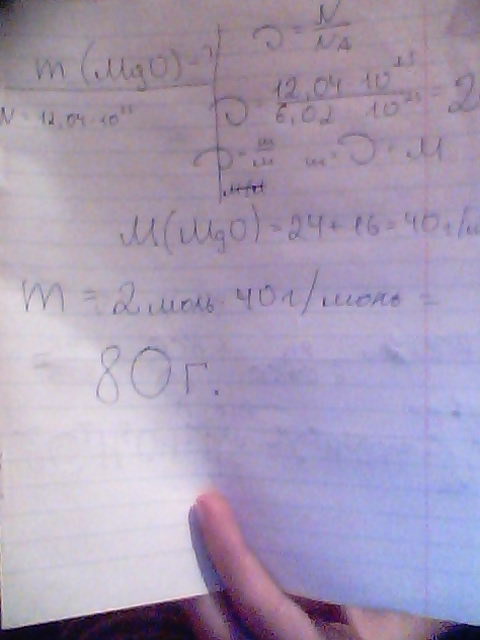 m(MgO) - ?
N = 12,04·10²³
υ = N/Nₐ
υ = 12,04·10²³ / 6,02·10²³ = 2
υ = m/M m = υ·M
M(MgO) = 24 + 16 = 40 г/м
m = 2 моль·40 г/моль =
= 80 г.